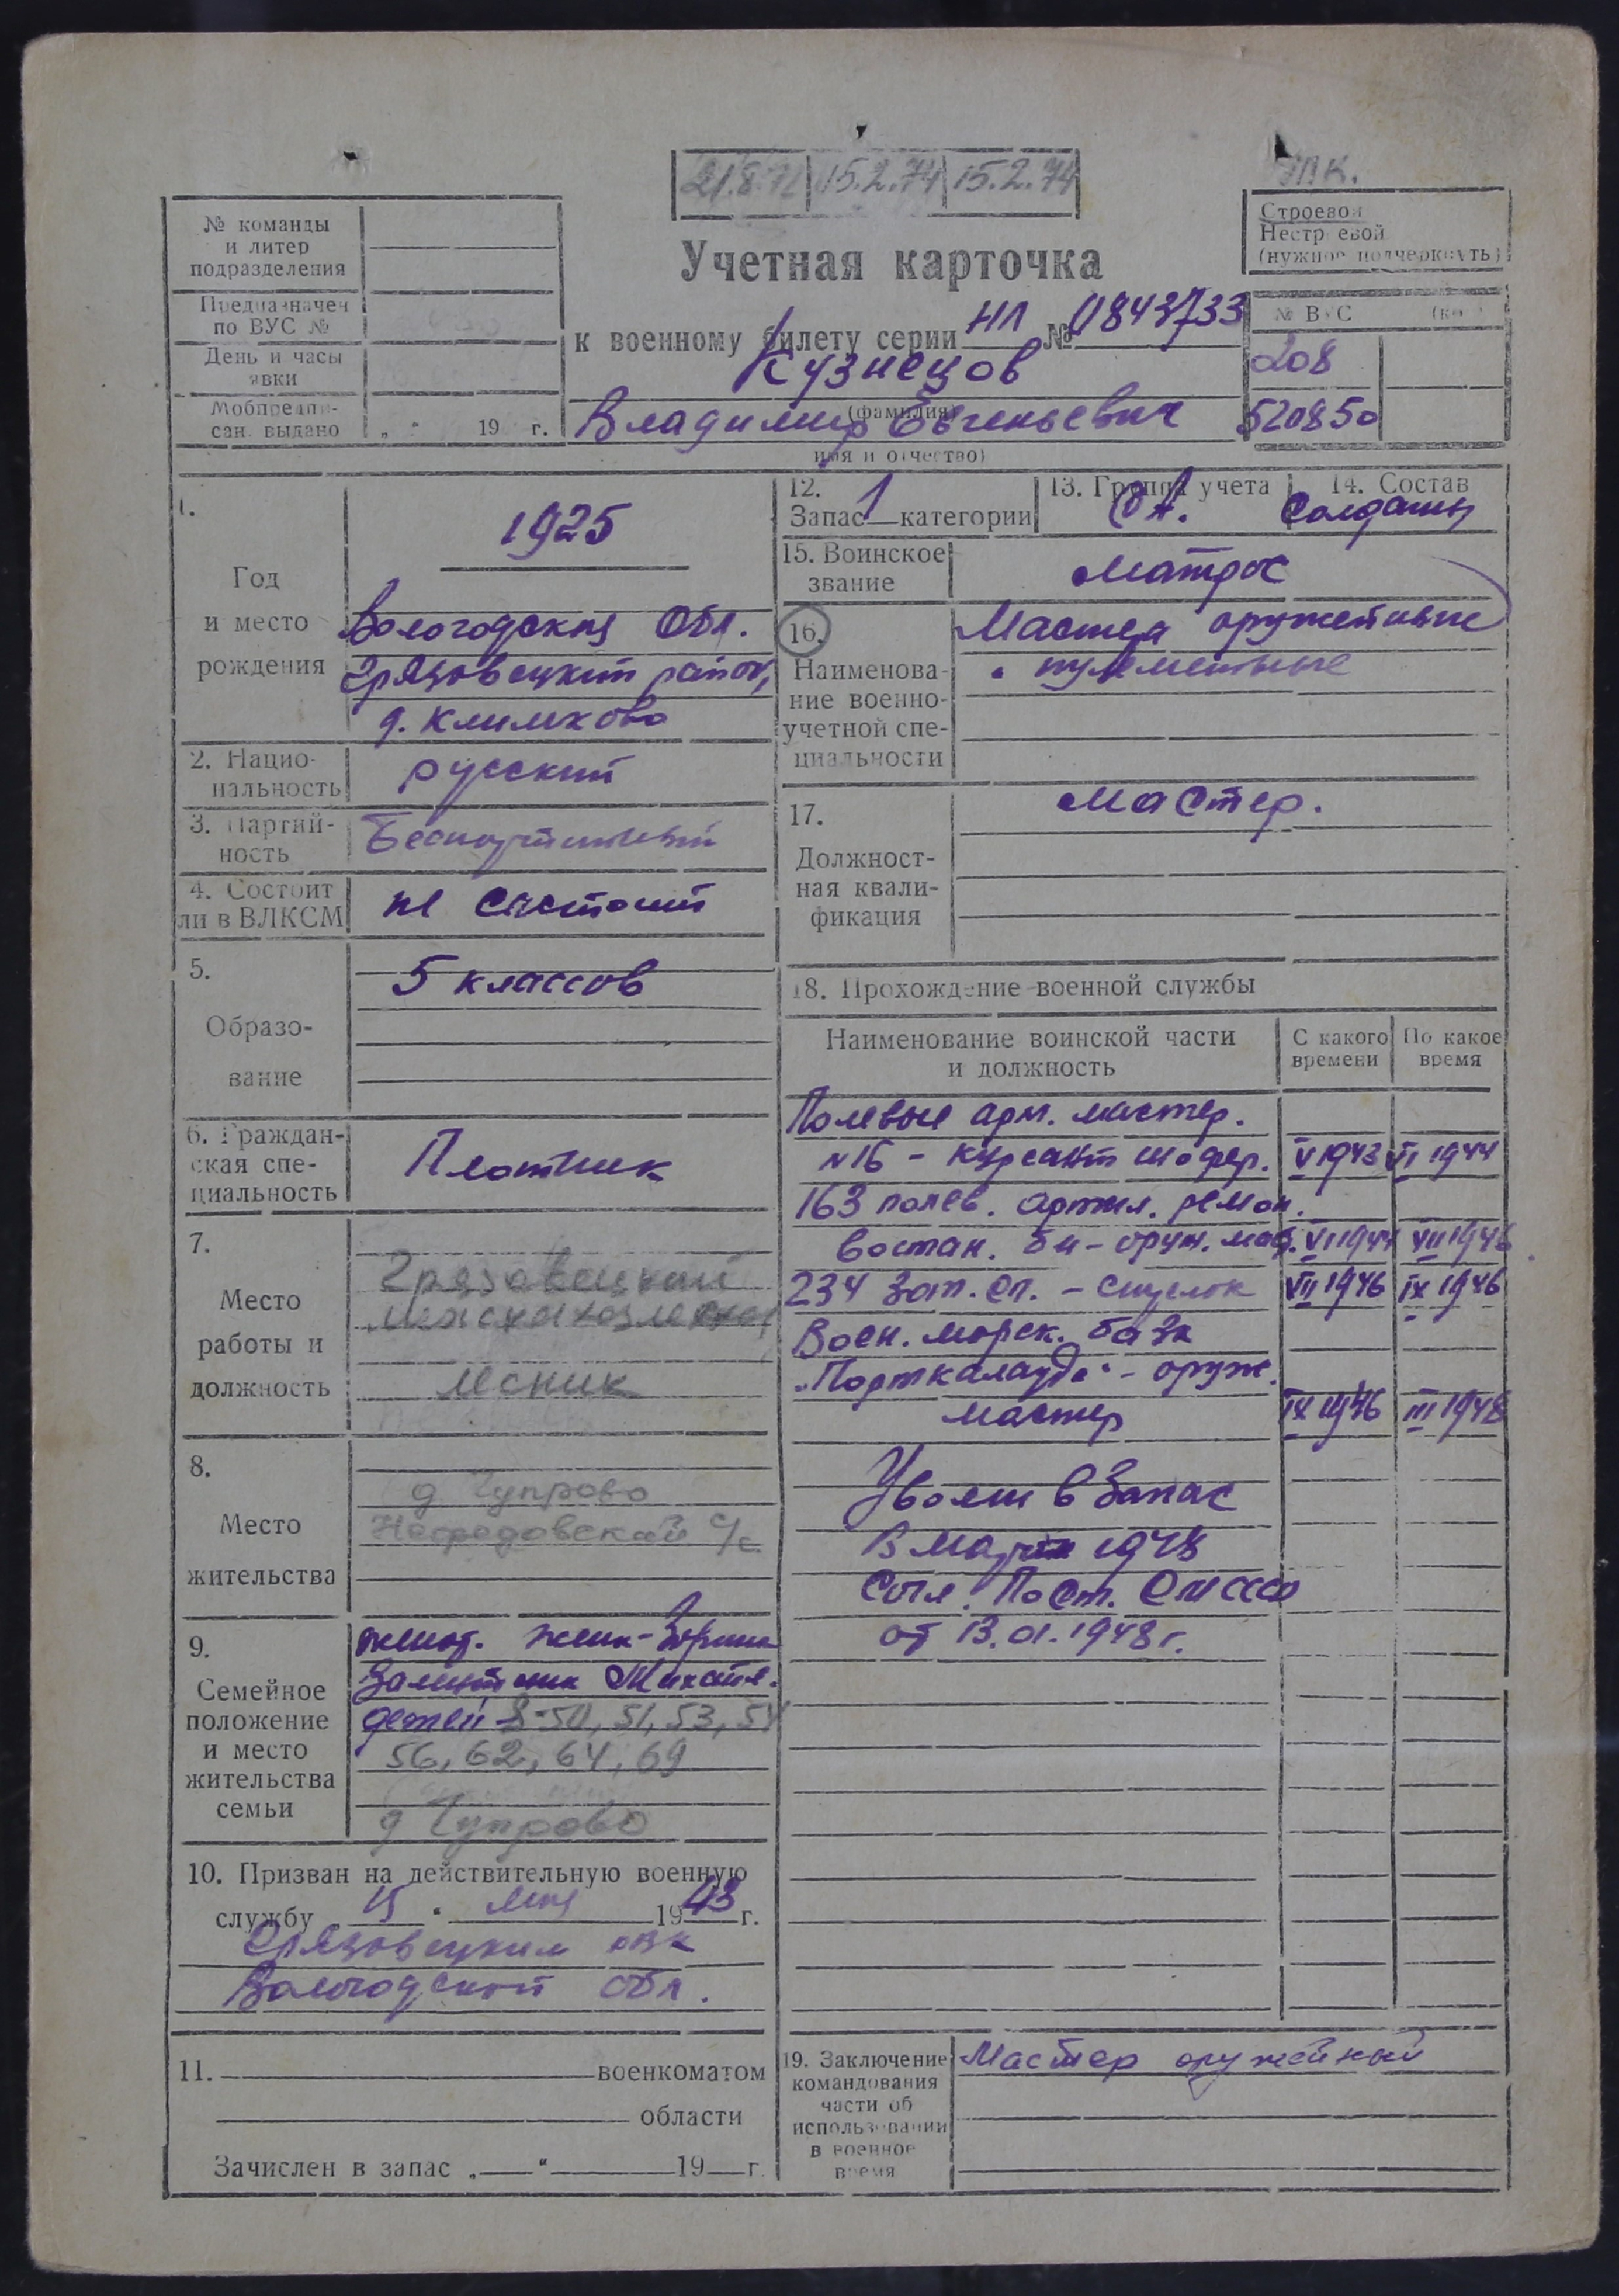 21.8.72 15.2.74 15.2.74
№ команды
и литер
подразделения
Предназначен
по ВУС №
День и часы
явки
Мобпредпи-
сан. выдано „ " 19 г.
Учетная карточка
к военному билету серии НЛ № 0843733
Кузнецов
(фамилия)
Владимир Евгеньевич
имя и отчество)
Строевой
Нестроевой
(нужное подчеркнуть)
№ ВУС
208
520850
1.
Год
и место
рождения
1925
Вологодская Обл.
Грязовецкий район,
д. Климково
2. Нацио-
нальность
русский
3. Партий-
ность
Беспартийный
4. Состоит
ли в ВЛКСМ
не состоит
5.
Образо-
вание
5 классов
6. Граждан-
ская спе-
циальность
Плотник
7.
Место
работы и
должность
Грязовецкий
лесник
8.
Место
жительства
д Чупрово
с/с
9.
Семейное
положение
и место
жительства
семьи
женат. жена - Зорина
Валентина Михайл.
детей - 8-50, 51, 53, 54
56, 62, 64, 69
д Чупрово
10. Призван на действительную военную
службу „ 15 " мая 1943 г.
Грязовецким РВК
Вологодской обл.
11. военкоматом
области
Зачислен в запас „ " 19 г.
12.
Запас 1 категории
13. Группа учета
СА.
14. Состав
Солдаты
15. Воинское
звание
Матрос
16.
Наименова-
ние военно-
учетной спе-
циальности
Мастера оружейные
и пулеметные
17.
Должност-
ная квали-
фикация
Мастер.
18. Прохождение военной службы
Наименование воинской части
и должность
С какого
времени
По какое
время
Полевые арт. мастер.
№16 - курсант шофер. V 1943 VI 1944
163 полев. артил. ремон.
востан. б-н - оруж. маст. VI 1944 VII 1946
234 Зап. сп. - стрелок VII 1946 IX 1946
Воен. морск. база
„Порткалауда" - оруж.
мастер IX 1946 III 1948
Уволен в Запас
В марте 1948
Согл. Пост. СМ СССР
от 13.01.1948 г.
19. Заключение
командования
части об
использовании
в военное
время
Мастер оружейный